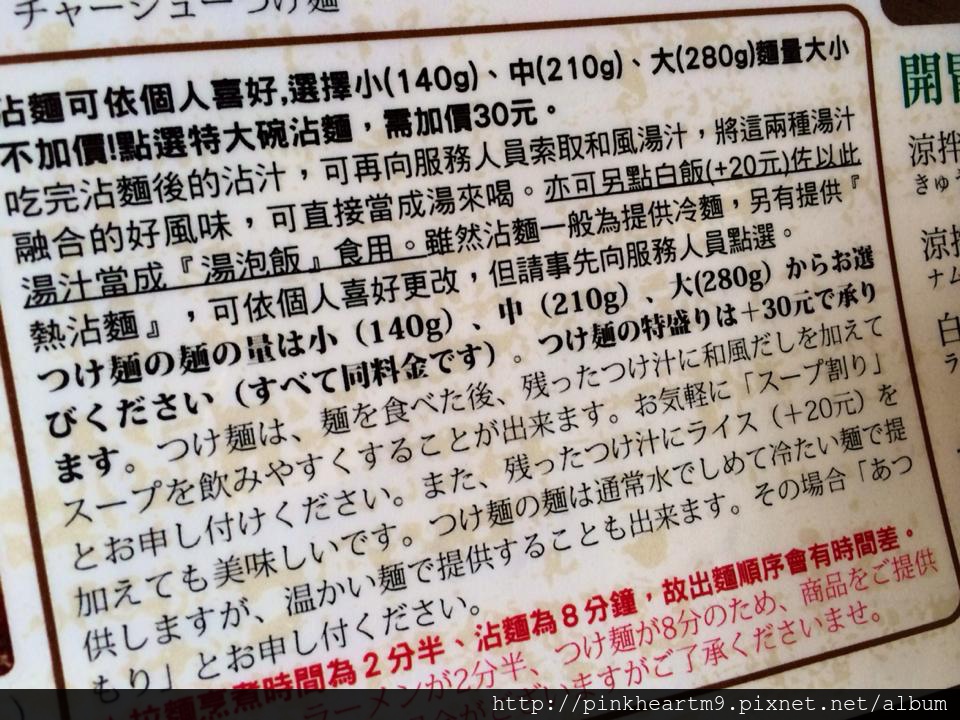 チャーシューつけ麺
沾麵可依個人喜好,選擇小(140g)、中(210g)、大(280g)麵量大小
不加價!點選特大碗沾麵，需加價30元。
吃完沾麵後的沾汁，可再向服務人員索取和風湯汁，將這兩種湯汁
融合的好風味，可直接當成湯來喝。亦可另點白飯(+20元)佐以此
湯汁當成『湯泡飯』食用。雖然沾麵一般為提供冷麵，另有提供『
熱沾麵』，可依個人喜好更改，但請事先向服務人員點選。
つけ麺の麺の量は小（140g）、中（210g）、大(280g）からお選
びください（すべて同料金です）。つけ麺の特盛りは＋30元で承り
ます。つけ麺は、麺を食べた後、残ったつけ汁に和風だしを加えて
スープを飲みやすくすることが出来ます。お気軽に「スープ割り」
とお申し付けください。また、残ったつけ汁にライス（＋20元）を
加えても美味しいです。つけ麺の麺は通常水でしめて冷たい麺で提
供しますが、温かい麺で提供することも出来ます。その場合「あつ
もり」とお申し付ください。
拉麵烹煮時間為2分半、沾麵為8分鐘，故出麵順序會有時間差。
ラーメンが2分半、つけ麺が8分のため、商品をご提供
ざいますがご了承くださいませ。
開胃
涼拌
きゅう
涼拌
ナム
白
ラ
http://pinkheartm9.pixnet.net/album